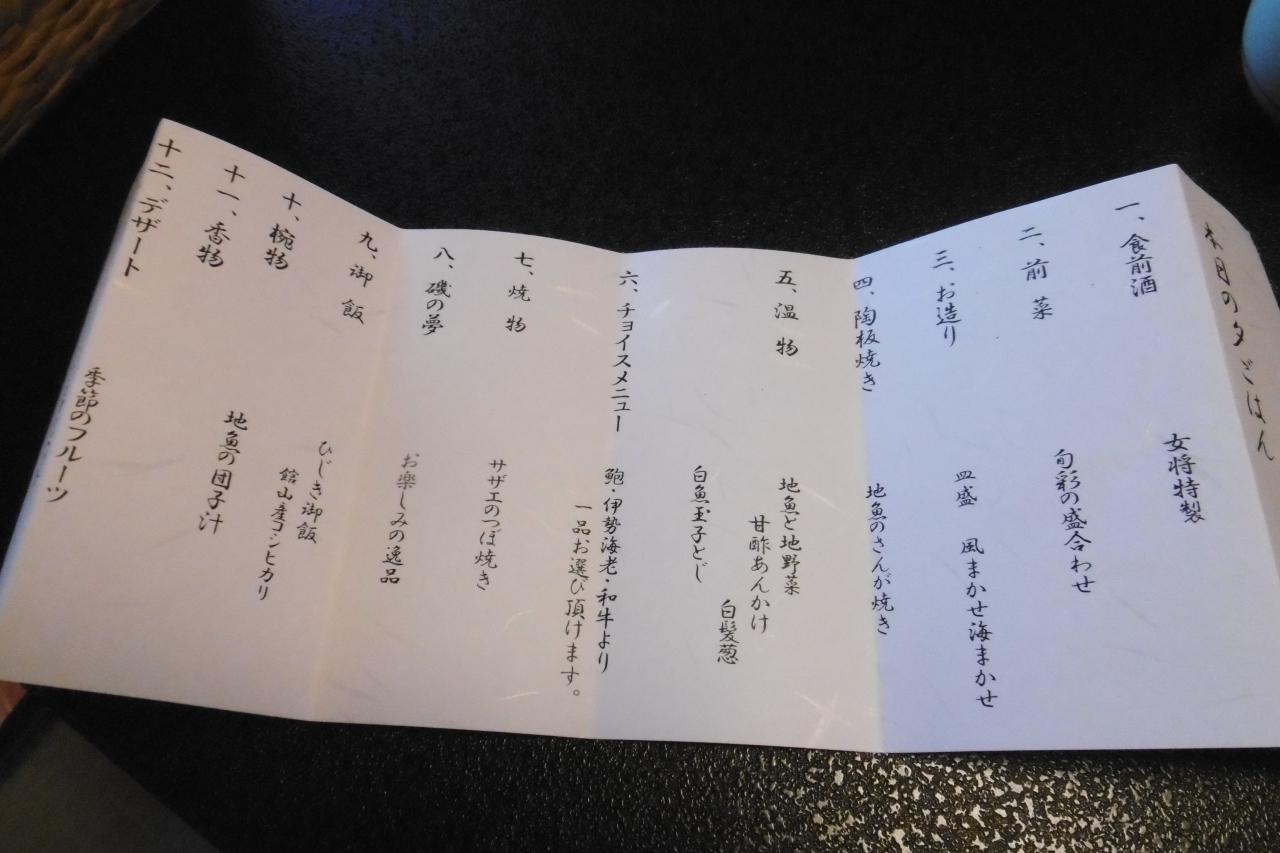 本日の夕ごはん
一、食前酒
女将特製
二、前菜
旬彩の盛合わせ
三、お造り
皿盛 風まかせ海まかせ
四、陶板焼き
地魚のさんが焼き
五、温物
地魚と地野菜
甘酢あんかけ
白髪葱
白魚玉子とじ
六、チョイスメニュー
鮑・伊勢海老・和牛より
一品お選び頂けます。
七、焼物
サザエのつぼ焼き
八、磯の夢
お楽しみの逸品
九、御飯
ひじき御飯
館山産コシヒカリ
十、椀物
地魚の団子汁
十一、香物
十二、デザート
季節のフルーツ